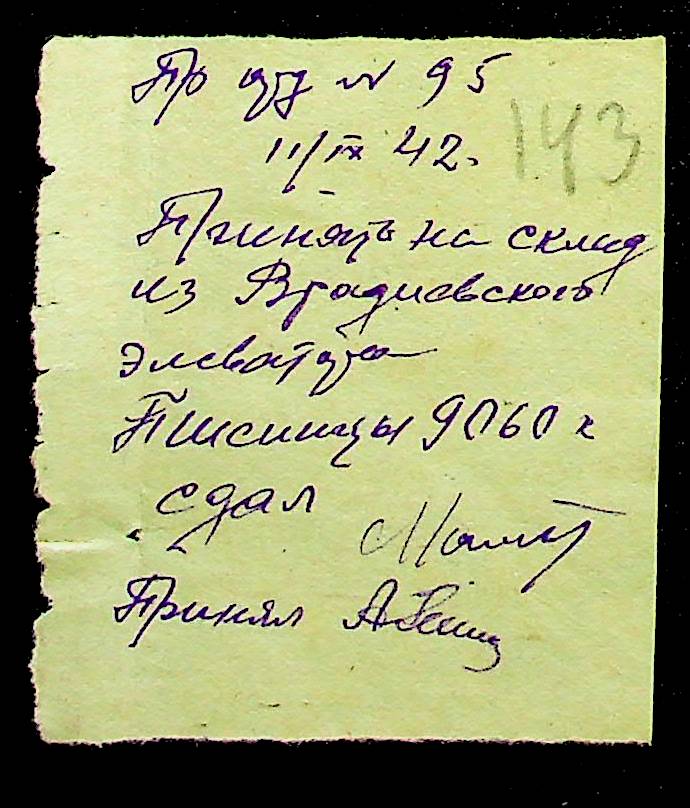 Пр орд № 95
11/IX 42.
143
Принято на склад
из Врадиевского
элеватора
Пшеницы 9060 к
сдал
Принял